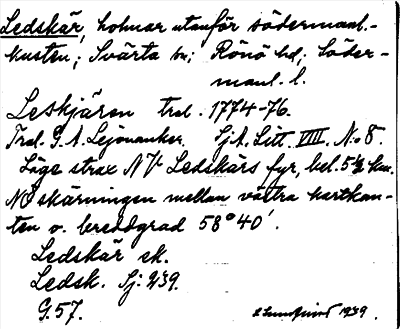 Ledskär, holmar utanför södermanl.-
kusten; Svärta sn; Rönö hd; Söder-
manl. l.
Leskjären trol. 1774-76.
Trol. G. A. Lejonanker. SjA. Litt. VIII. No 8.
Läge strax NV Ledskärs fyr, bel. 5½ km.
NO skärningen mellan västra kartkan-
ten o. breddgrad 58°40'.
Ledskär ek.
Ledsk. Sj: 239.
G. 57.
1939.